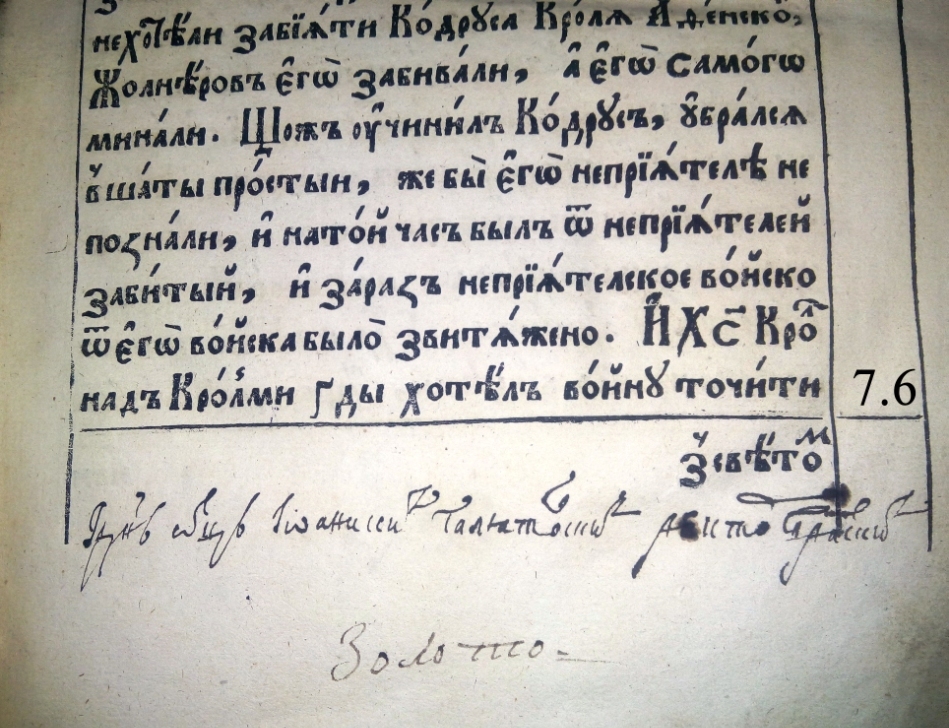 нехотѣли забїѧ́ти Ко́друса Кро́лѧ Аѳе́нско̑,
Жолнѣ́ровъ є҆гѡ̀ забива́ли, а҆ є҆гѡ̀ само́гѡ
мина́ли. Щожъ оу҆чини́лъ Ко́друсъ, ꙋ҆бра́лсѧ
в̾ша́ты про́стыи, же бы̀ є҆гѡ̀ непрїѧ́телѣ не
позна́ли, и҆ на то́й часъ былъ ѿ непрїѧ́телей
заби́тый, и҆ за́разъ непрїѧ́телское во́йско
ѿ є҆гѡ̀ во́йска было̀ звитѧ́жено. И҆ Хс҃ Кроⷧ҇
надъ Кро́лѧми ґды хотѣ́лъ во́йнꙋ точи́ти
7.6
з̾свѣ́тоⷨ
Золото